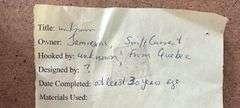 Title: unknown
Owner: Jamieson, Swift Current
Hooked by: unknown; from Quebec
Designed by: ?
Date Completed: at least 30 years ago
Materials Used: